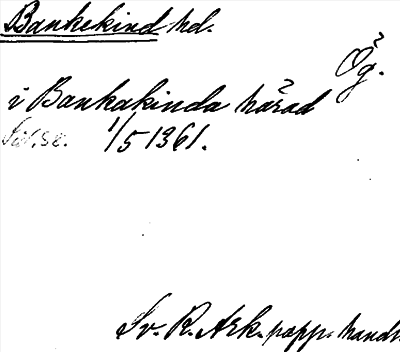 Bankekind hd.
Ög.
i Bankakinda härad
1/5 1361.
Sv. R. Ark. papp. handl